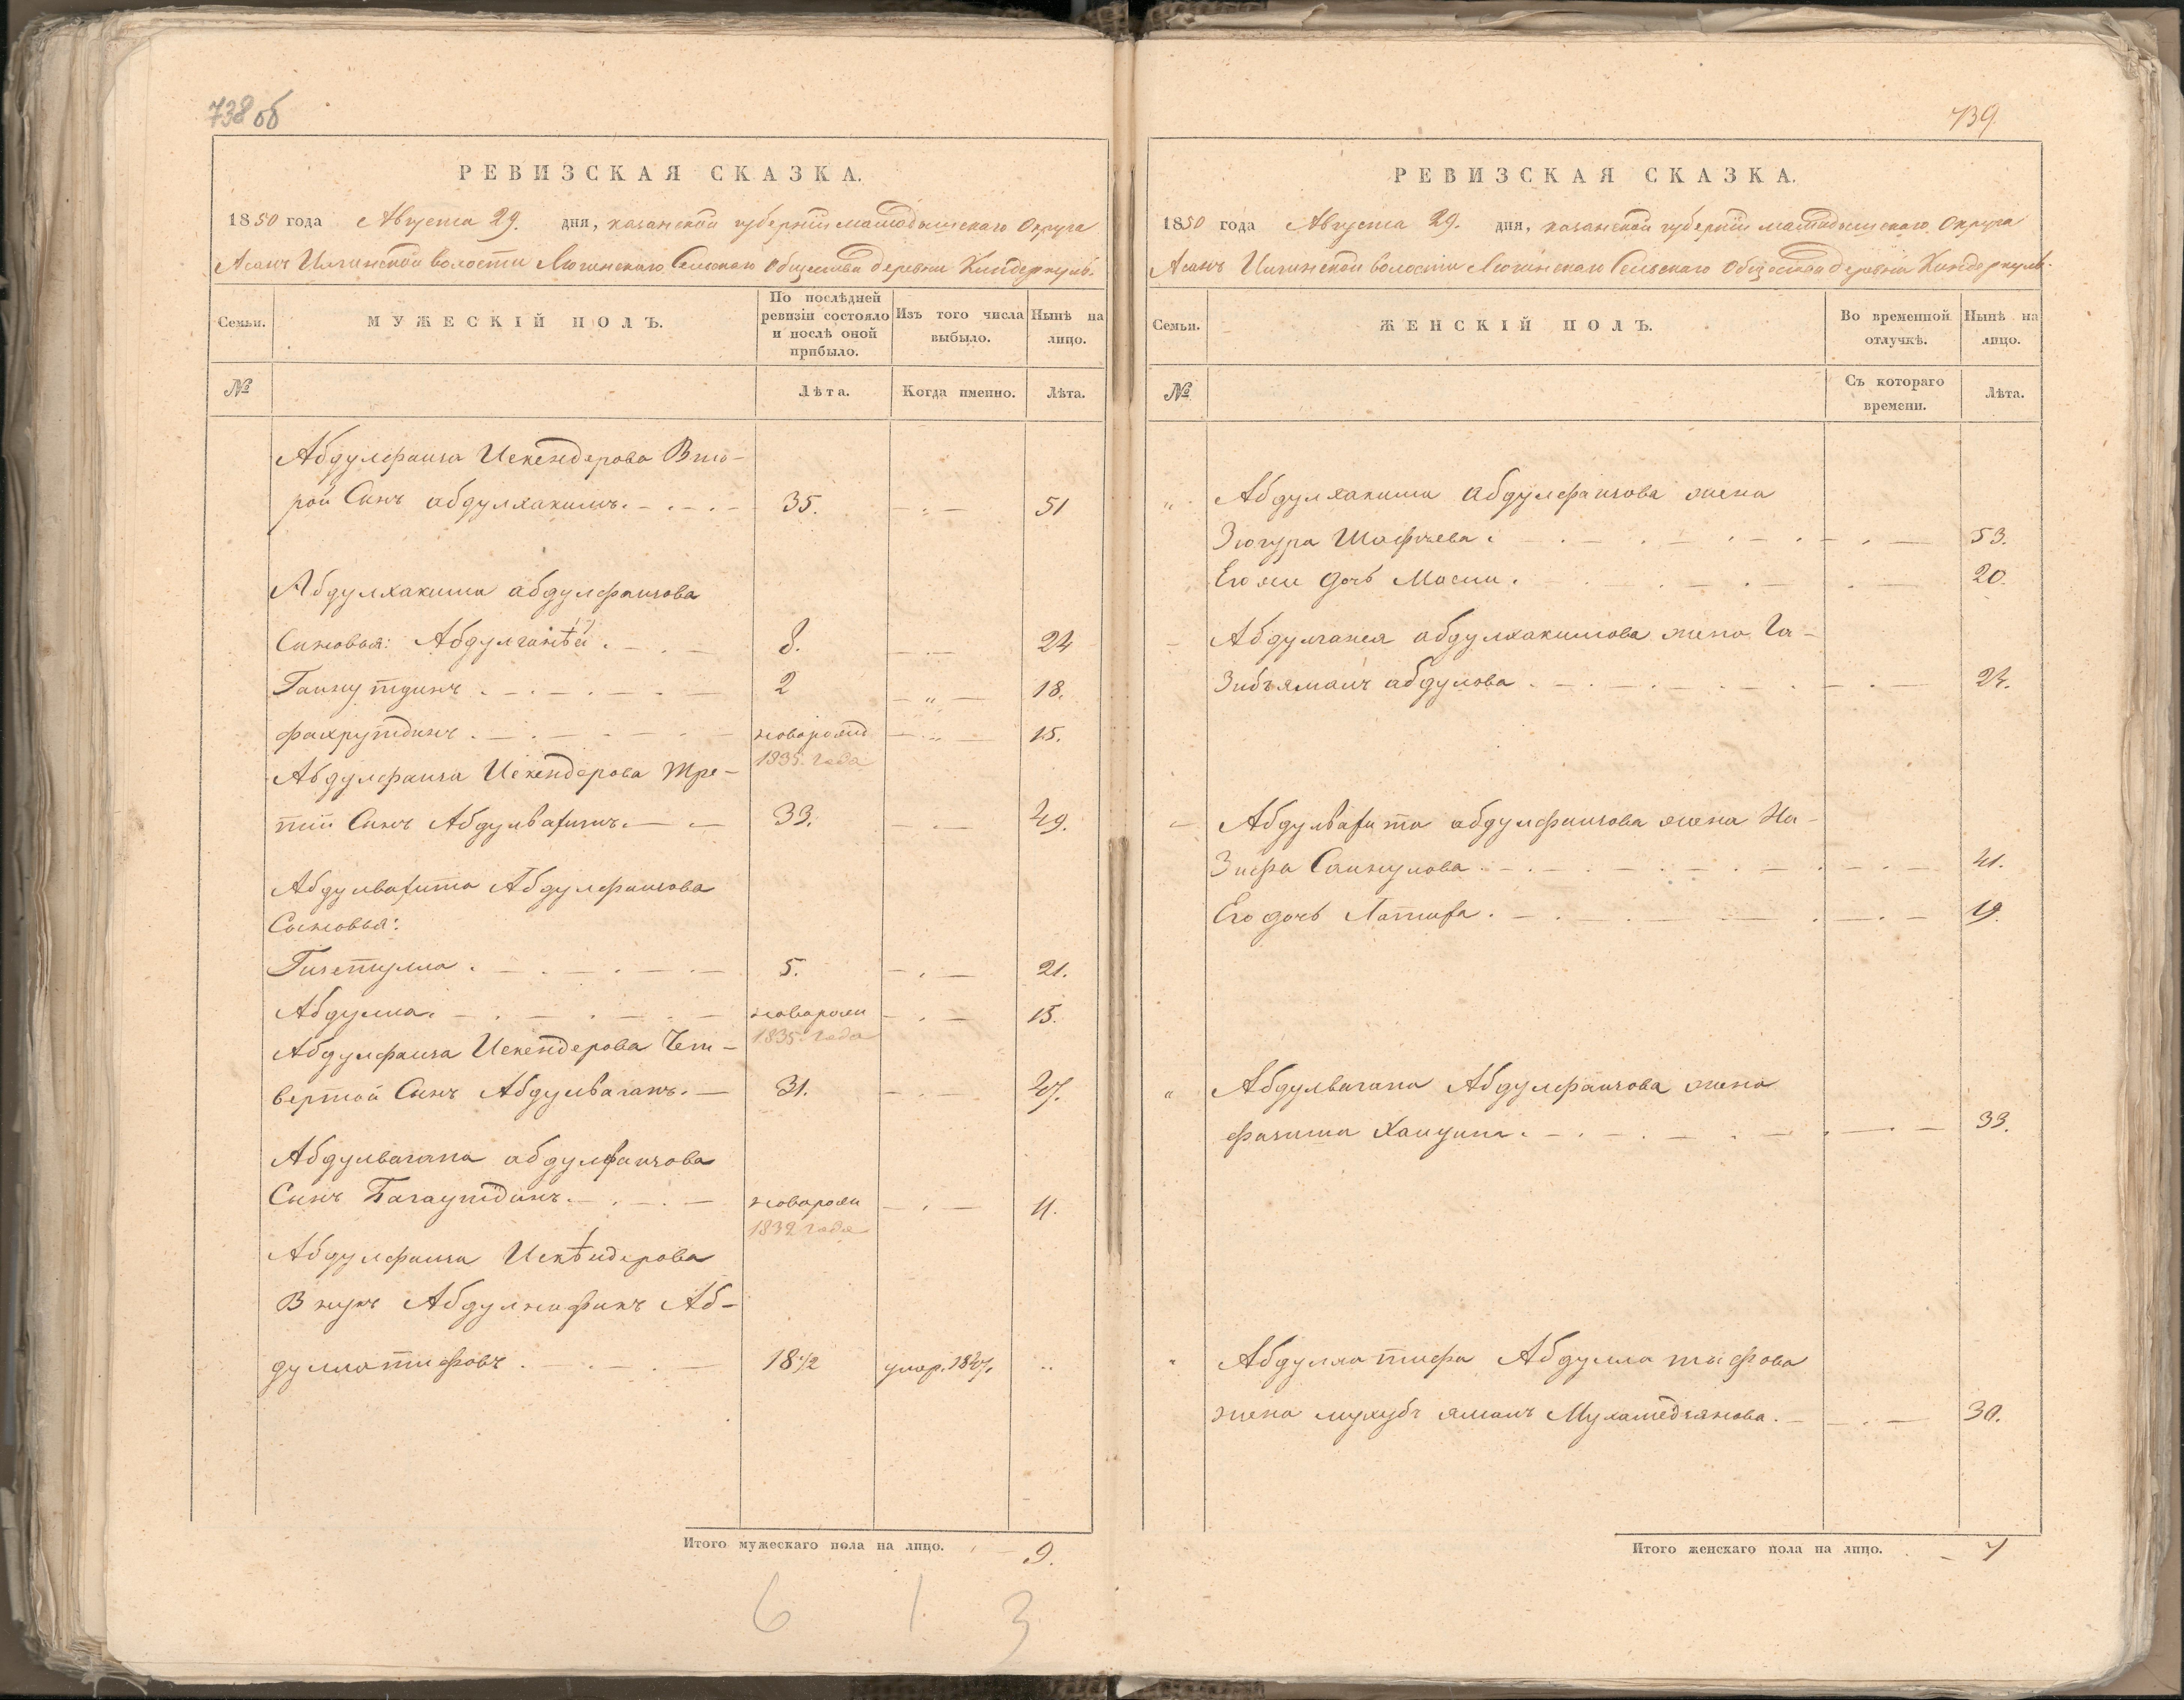 738 об
РЕВИЗСКАЯ СКАЗКА.
1850 года Августа 29. дня, казанской губернiи мамадышскаго Округа
Асанъ Илгинской волости Сельскаго Общества деревни Киндеркуль.
Семьи.
МУЖЕСКIЙ ПОЛЪ.
По послѣдней ревизiи состояло и послѣ оной прибыло.
Изъ того числа выбыло.
Нынѣ на лицо.
№
Лѣта.
Когда именно.
Лѣта.
Абдулфаиза Искендерова Вто-
рой Сынъ абдулхакимъ. 35. 51
Абдулхакима абдулфаизова
Сыновья: Абдулганѣй. 8. 24
Гайнутдинъ. 2 18.
фахрутдинъ. новорожд 15.
1835. года
Абдулфаиза Искендерова Тре-
тiй Сынъ Абдулвагитъ. 33. 49.
Абдулвагита Абдулфаизова
Сыновья:
5. 21.
Абдулла. новорож 15.
1835. года
Абдулфаиза Искендерова Чет-
вертой Сынъ Абдулваганъ. 31. 47.
Абдулвагапа абдулфаизова
Сынъ Багаутдинъ. новорож 11.
1839 года
Абдулфаиза Искѣндерова
Внукъ Аб-
дуллатифовъ. 18 1/2 умер. 1847.
Итого мужескаго пола на лицо. 9.
6 1 3
739.
РЕВИЗСКАЯ СКАЗКА.
1850 года Августа 29. дня, казанской губернiи мамадышскаго Округа
Асанъ Илгинской волости Сельскаго Общества деревни Киндеркуль.
Семьи.
ЖЕНСКIЙ ПОЛЪ.
Во временной отлучкѣ.
Нынѣ на лицо.
№
Съ котораго времени.
Лѣта.
Абдулхакима абдулфаизова жена
Зюгура Шафѣева. 53.
Его же дочь 20.
Абдулганея абдулхакимова жена Га-
абдулова 24.
Абдулвагита абдулфаизова жена На-
зифа 41.
Его дочь Латифа. 19.
Абдулвагапа Абдулфаизова жена
33.
Абдуллатифова
жена Мухаметзянова. 30.
Итого женскаго пола на лицо. 7